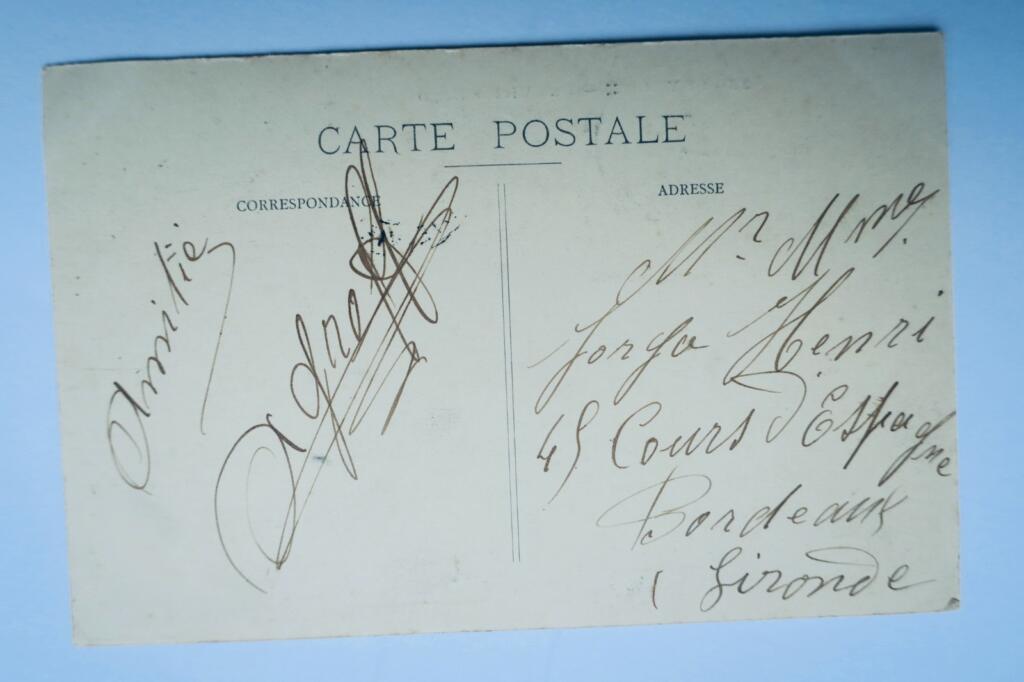 CARTE POSTALE
CORRESPONDANCE
Amitié
ADRESSE
Mr Mme
Henri
45 Cours d'Espagne
Bordeaux
(Gironde